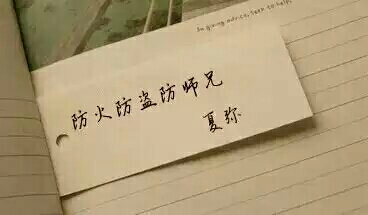 In giving advice, seek to help,
防火防盗防师兄
夏弥